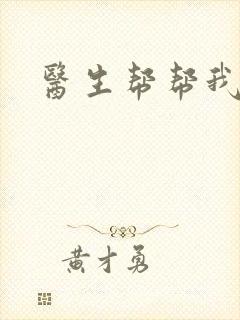 醫生帮帮我
黄才勇